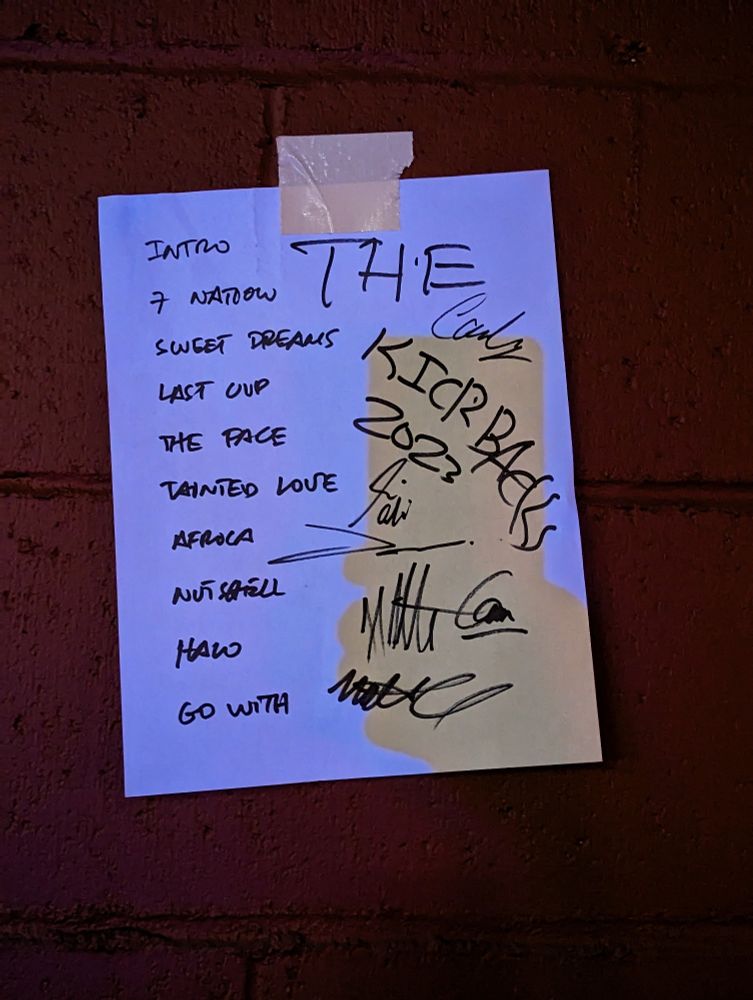 INTRO
7 NATION
SWEET DREAMS
LAST CUP
THE FACE
TAINTED LOVE
AFRICA
NUTSHELL
HALO
GO WITH
THE
KICKBACKS
2023